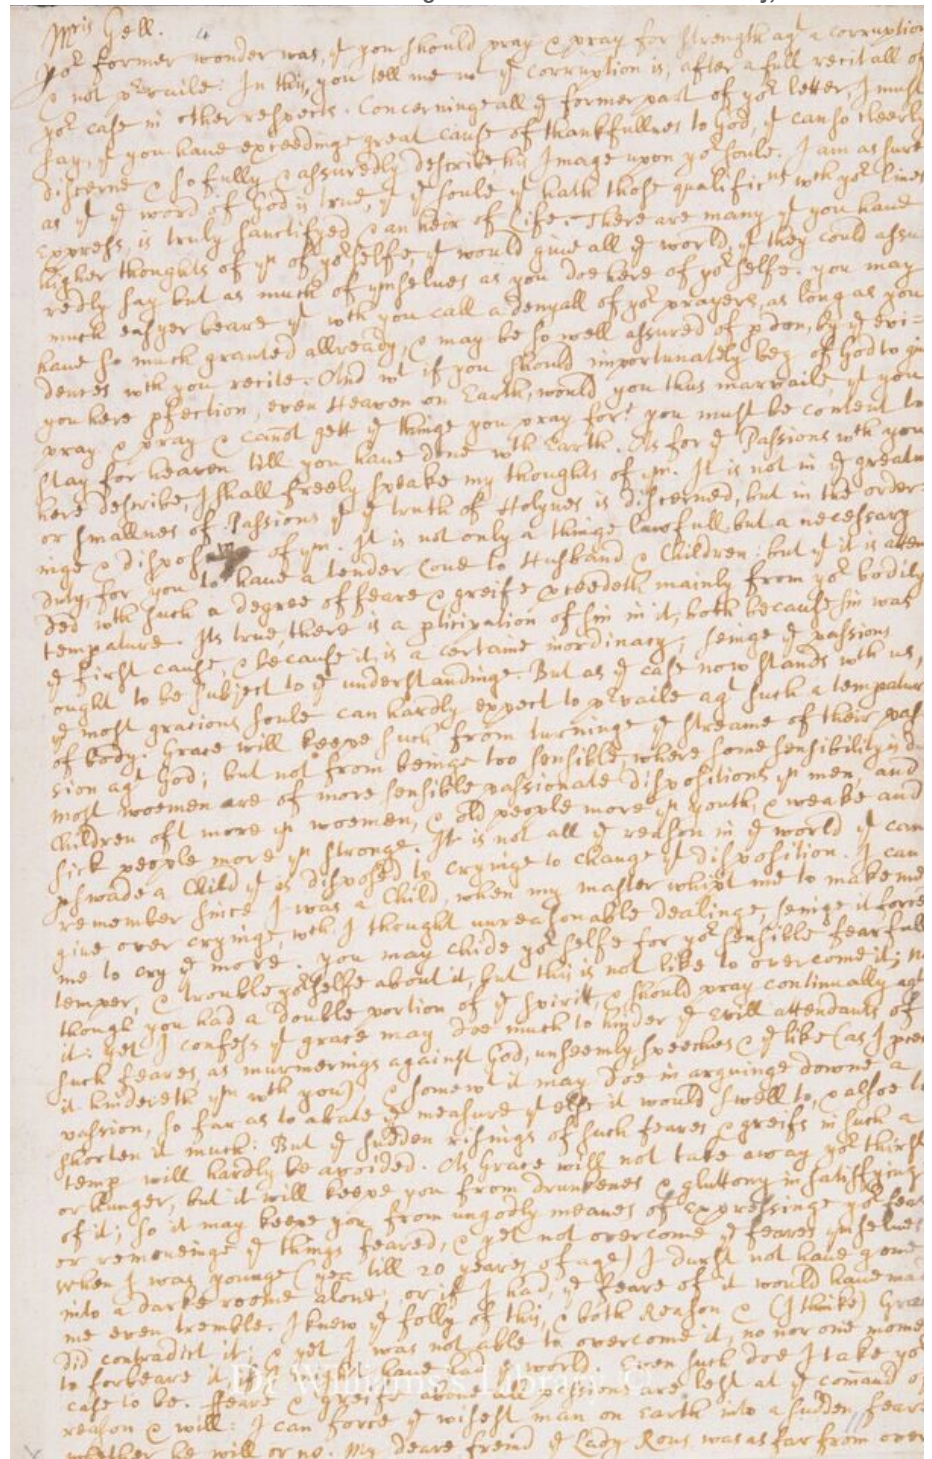 Mris Gell.
yor former wonder was, yt you should pray & pray for strength agt a corruption
& not prvaile: In this, you tell me wt yt corruption is, after a full recitall of
yor case in other respects. Concerninge all ye former part of yor letter, I must
say, yt you have exceedinge great cause of thankfullnes to God, yt can so cleerly
discerne & so fully & assuredly describe his Image upon yor soule. I am as sure
as yt ye word of God is true, yt ye soule yt hath those qualific wch yor lines
express, is truly sanctifyed & an heir of Life. There are many yt you have
higher thoughts of yn of yorselfe, yt would give all ye world, yt they could assu
redly say but as much of ymselves as you doe here of yorselfe. you may
much easyer beare yt wch you call a denyall of yor prayers, as long as you
have so much granted allready, & may be so well assured of pdon, by ye evi=
dences wch you recite. And wt if you should importunately beg of God to giv
you here pfection, even Heaven on Earth, would you thus marvaile yt you
pray & pray & cannot gett ye thinge you pray for? you must be content to
stay for heaven till you have done wth Earth. As for ye Passions wch you
here describe, I shall freely speake my thoughts of ym. It is not in ye greatn
or smallnes of Passions yt ye truth of Holynes is discerned, but in the order=
inge & dispos of ym. It is not only a thinge lawfull but a necessary
duty, for you to have a tender love to Husband & Children: but yt it is atten
ded wth such a degree of feare & greife pceedeth mainly from yor bodily
temperature. Its true, there is a pticipation of sin in it, both because sin was
ye first cause, & because it is a certaine inordinacy; seinge ye passions
ought to be subject to ye understandinge. But as ye case now stands wth us,
ye most gracious soule can hardly expect to prvaile agt such a temperatur
of body. Grace will keepe such from turninge ye streame of their pas
sion agt God; but not from beinge too sensible, where some sensibility is d
most woemen are of more sensible passionate dispositions yn men, and
Children oft more yn woemen, & old people more yn youth, & weake and
sick people more yn stronge. It is not all ye reason in ye world yt can
pswade a Child yt is disposed to cryinge to change yt disposition. I can
remember since I was a Child, when my master whipt me to make me
give over cryinge, wch I thought unreasonable dealinge, seinge it force
me to cry ye more. you may chide yorselfe for yor sensible fearfull
temper, & trouble yorselfe about it, but this is not like to overcome it; n
though you had a double portion of ye spiritt, & should pray continually agt
it: yet I confess yt grace may doe much to hinder ye evill attendants of
such feares, as murmerings against God, unseemly speeches & ye like (as I pcei
it hindereth ym wth you) & somewt it may doe in arguinge downe a
passion, so far as to abate ye measure yt else it would swell to, & alsoe to
shorten it much: But ye sudden risings of such feares & greifs in such a
temp will hardly be avoided. As Grace will not take away yor thirst
or hunger, but it will keepe you from drunkenes & gluttony in satisfying
of it; so it may keepe you from ungodly meanes of expressinge yor fear
or removeinge ye things feared, & yet not overcome ye feares ymselves
when I was younge (yea till 20 yeares of age) I durst not have gone
into a darke roome alone, or if I had, ye feare of it would have mad
me even tremble. I knew ye folly of this, & both Reason & (I thinke) Grac
did contradict it; & yet I was not able to overcome it, no nor one mome
to forbeare it if I might have had ye world. Even such doe I take yor
case to be. ffeare & greife above all passions are lest at ye comand of
reason & will: I can force ye wisest man on Earth into a sudden, feare
whether he will or no. My deare freind ye Lady Rous was as far from over
Dr Williams's Library ©